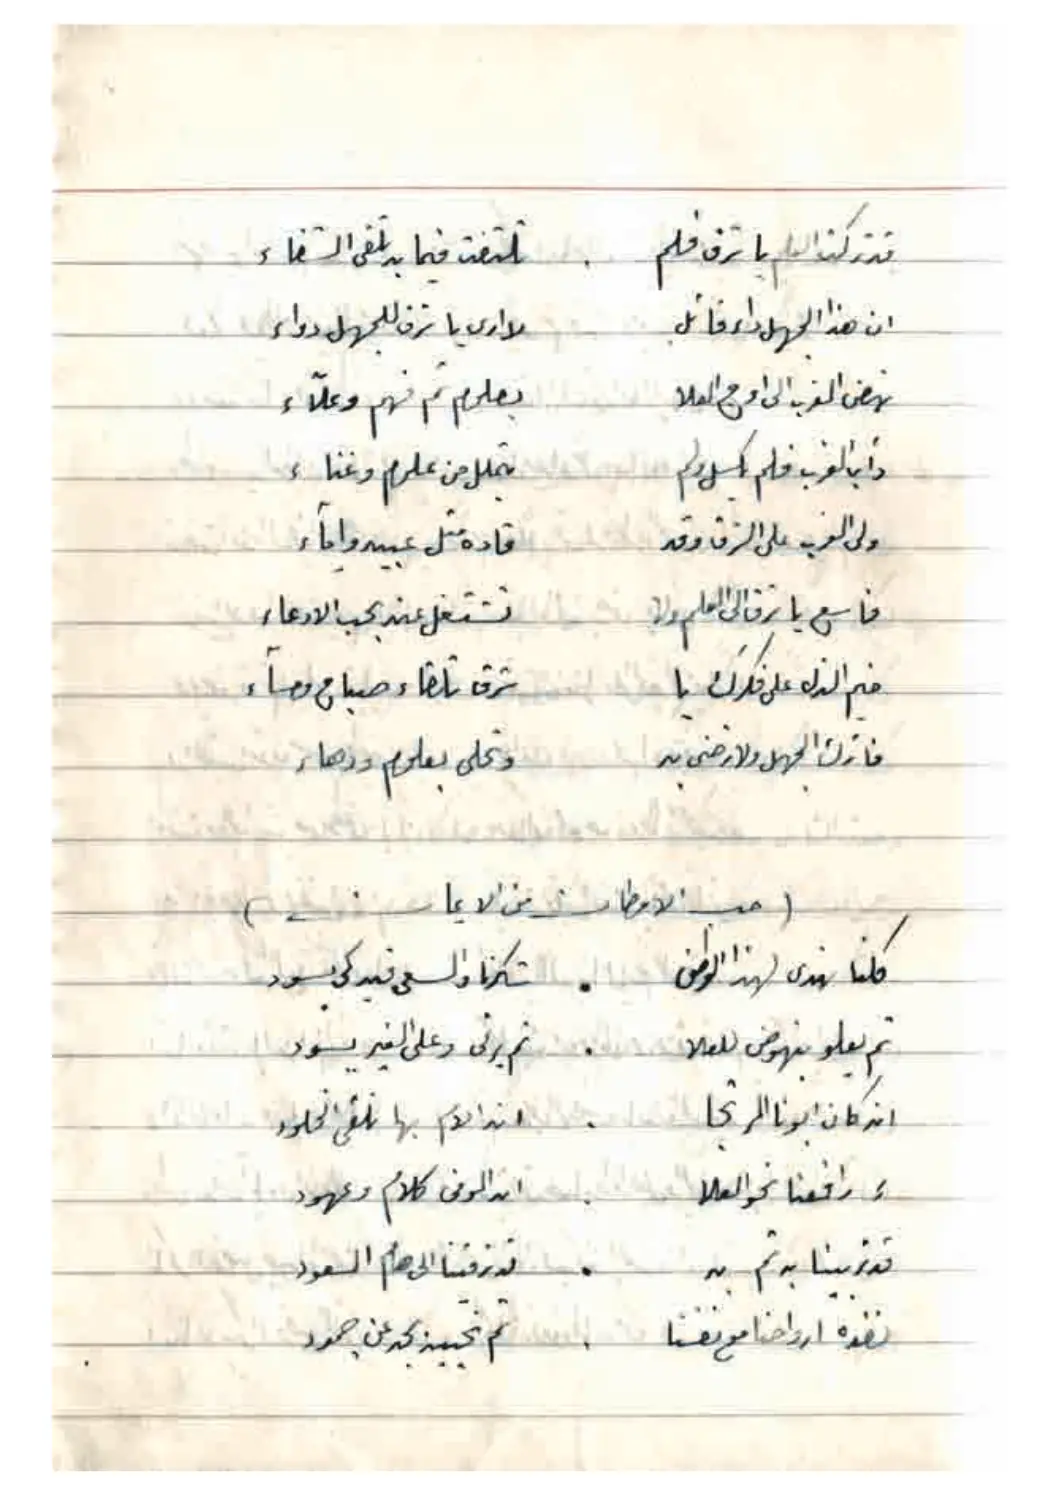 قد تركت العلم يا شرق فلم . تلتفت فيما به تلقى الشفاء
ان هذا الجهل داء قاتل لا ارى يا شرق للجهل دواء
نهض الغرب الى اوج العلا بعلوم ثم فهم وعلاّء
دأب الغرب فلم يكسل ولم من علوم وغناء
ولى الغرب على الشرق وقد قاده مثل عبيد واماء
فاسع يا شرق الى العلم ولا تشتغل عنه بحب الادعاء
خيم الذل على فكرك يا شرق تلقاء صباح ومساء
فاترك الجهل ولا ترضى به وتحلى بعلوم ودهاء
( حب الاوطان من الايمان )
كلنا نهدى لهذا الوطن . شكرنا والسعى فيه كى يسود
ثم يعلو بنهوض للعلا . ثم يرقى وعلى الغير يسود
انه كان ابونا المرتجا . انه الام بها نلقى الخلود
ء رافعنا نحو العلا . انه الوفى كلام وعهود
قد تربينا به ثم به . قد ترقينا الى هام السعود
نفده ارواحنا مع نفسنا . ثم نحييه بجد عن جمود